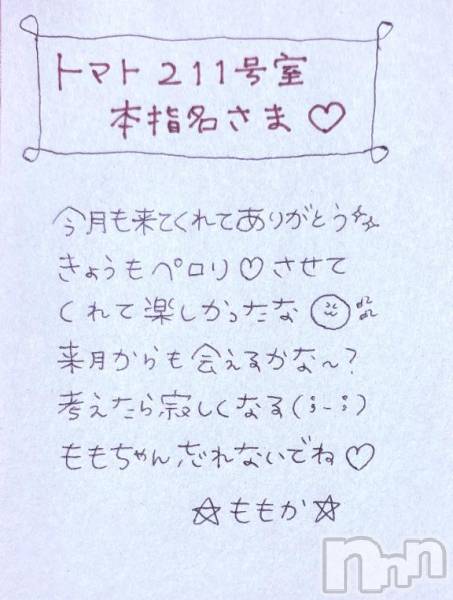 トマト211号室
本指名さま♡
今月も来てくれてありがとう
きょうもペロリ♡させて
くれて楽しかったな
来月からも会えるかな〜?
考えたら寂しくなる(;-;)
ももちゃん忘れないでね♡
☆ももか☆
nnn